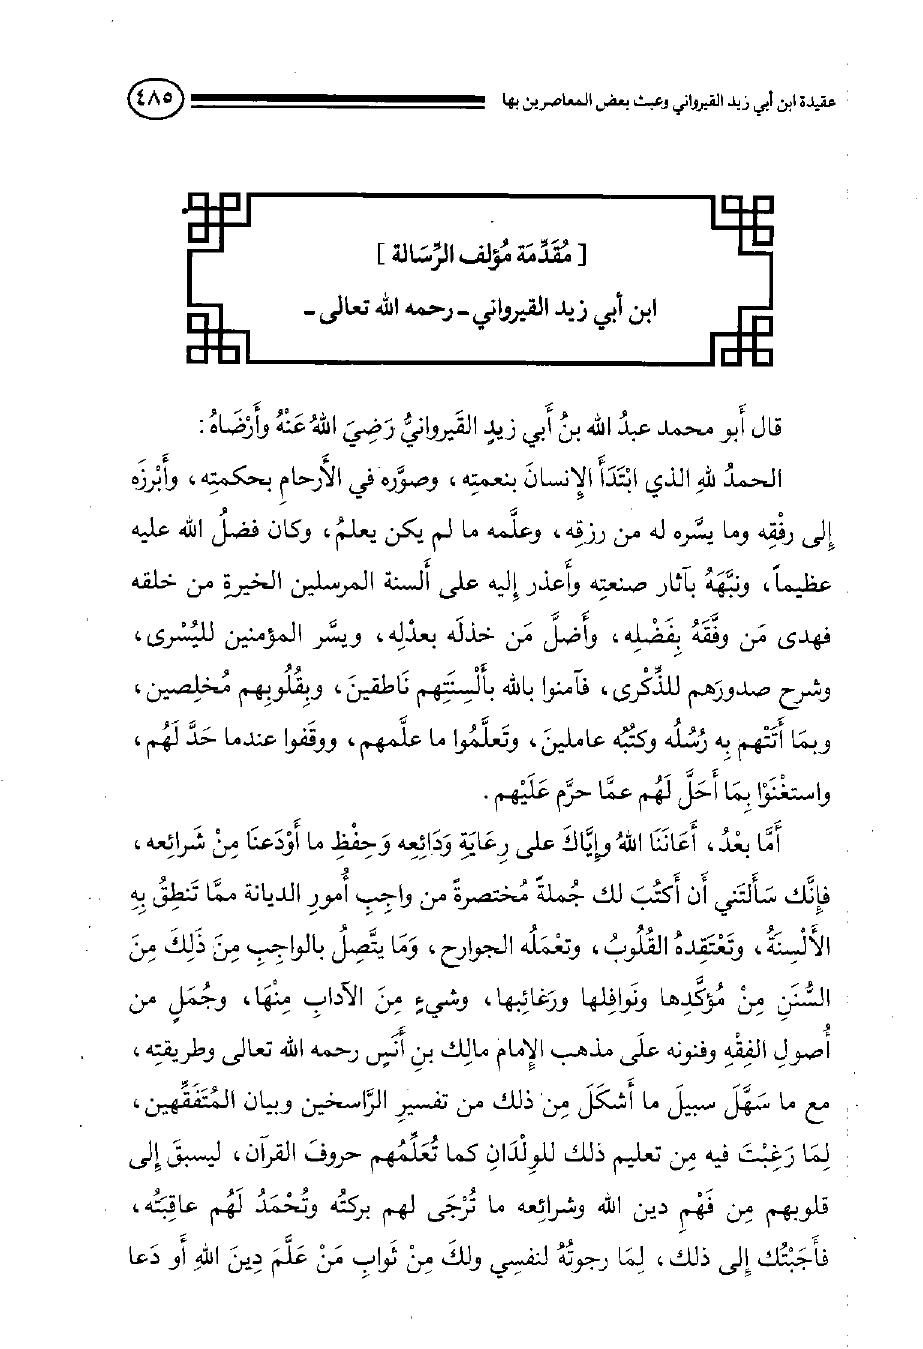 عقيدة ابن أبي زيد القيرواني وعبث بعض المعاصرين بها ٤٨٥
[ مُقَدِّمَة مُؤلف الرِّسَالة ]
ابن أبي زيد القيرواني - رحمه الله تعالى -
قال أَبو محمد عبدُ الله بنُ أَبي زيدٍ القَيروانيُّ رَضِيَ اللهُ عَنْهُ وأَرْضَاهُ :
الحمدُ للهِ الذي ابْتَدَأَ الإنسانَ بنعمتِه ، وصوَّره في الأَرحامِ بحكمتِه ، وأَبْرزَه
إلى رفْقِه وما يسَّره له من رزقِه ، وعلَّمه ما لم يكن يعلمُ ، وكان فضلُ الله عليه
عظيماً ، ونبَّهَهُ بآثار صنعتِه وأَعذر إليه على أَلسنة المرسلين الخيرةِ من خلقه
فهدى مَن وفَّقَهُ بِفَضْلِه ، وأَضلَّ مَن خذلَه بعدْلِه ، ويسَّر المؤمنين لليُسْرى ،
وشرح صدورَهم للذِّكْرى ، فآمنوا بالله بأَلْسِنَتِهم نَاطقينَ ، وبِقُلُوبِهم مُخلِصين ،
وبمَا أَتَتْهم بِه رُسُلُه وكتبُه عاملينَ ، وتَعلَّمُوا ما علَّمهم ، ووقَفوا عندما حَدَّ لَهُم ،
واستغْنَوْا بِمَا أَحَلَّ لَهُم عمَّا حرَّم عَلَيْهم .
أَمَّا بعْدُ ، أَعَانَنَا اللهُ وإيَّاكَ على رِعَايَةِ وَدَائِعِه وَحِفْظِ ما أَوْدَعنَا مِنْ شَرائِعه ،
فإنَّك سَأَلتَني أن أَكتُبَ لك جُملةً مُختصرةً من واجِبِ أُمورِ الديانة ممَّا تَنطِقُ بِهِ
الأَلْسِنَةُ ، وتَعْتَقِدهُ القُلُوبُ ، وتعْمَلُه الجوارح ، وَمَا يتَّصِلُ بالواجِبِ مِنَ ذَلِكَ مِنَ
السُّنَنِ مِنْ مُؤكَّدها ونَوافلها ورَغائِبها ، وشيءٍ مِنَ الآدابِ مِنْهَا ، وجُمَلٍ من
أصولِ الفِقْهِ وفنونه علَى مذهب الإمَامِ مالِك بنِ أَنَسٍ رحمه الله تعالى وطريقتِه ،
مع ما سَهَّلَ سبيلَ ما أَشكَلَ مِن ذلك من تفسيرِ الرَّاسخين وبيان المُتَفَقِّهين ،
لِمَا رَغِبْتَ فيه مِن تعليمِ ذلك للوِلْدَانِ كما تُعَلِّمُهم حروفَ القرآن ، ليسبقَ إلى
قلوبهم مِن فَهْمِ دين الله وشرائعه ما تُرْجَى لهم بركتُه وتُحْمَدُ لَهُم عاقِبَتُه ،
فأَجَبْتُك إلى ذلك ، لِمَا رجوتُهُ لنفسي ولكَ مِنْ ثَوابِ مَنْ عَلَّمَ دِينَ اللهِ أو دَعا